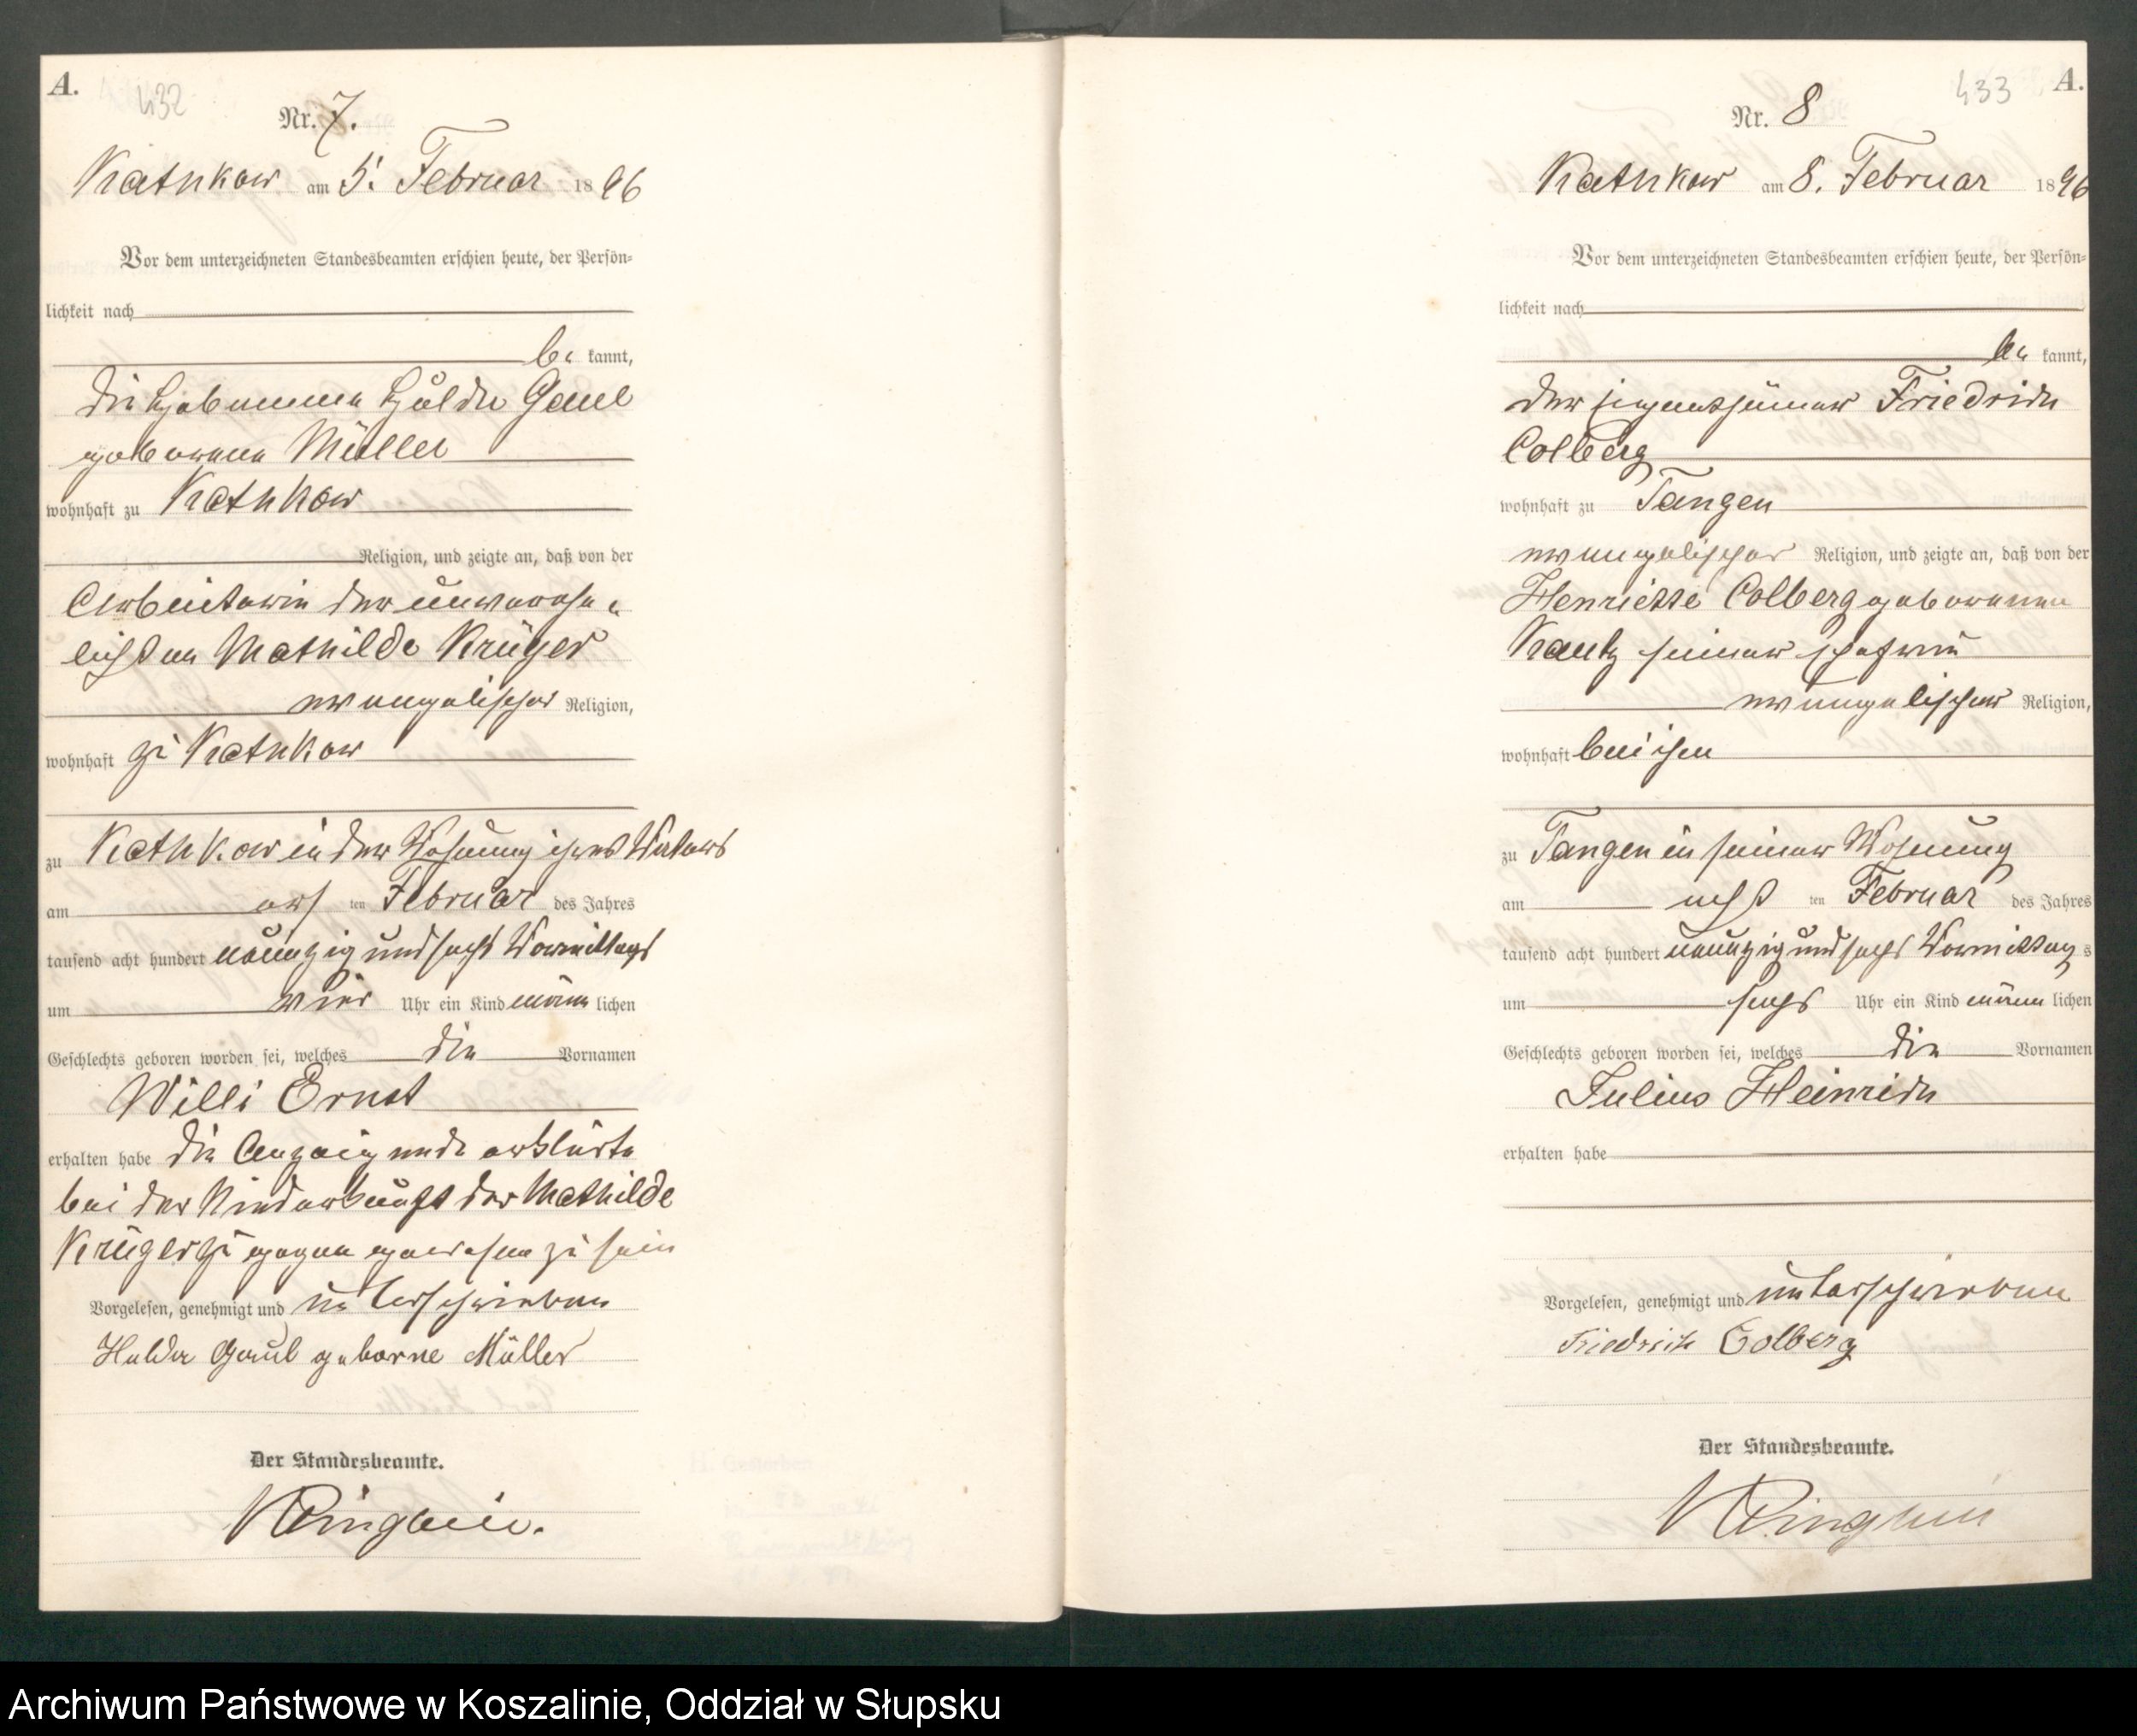 A.
432
Nr. 7.
Kathkow am 5. Februar 1896
Vor dem unterzeichneten Standesbeamten erschien heute, der Persön-
lichkeit nach
be kannt,
die Hebamme Hulda Gaul
geborene Müller
wohnhaft zu Kathkow
Religion, und zeigte an, daß von der
Arbeiterin der unverehe-
lichten Mathilde Krüger
evangelischer Religion,
wohnhaft zu Kathkow
zu Kathkow in der Wohnung ihres Vaters
am ten Februar des Jahres
tausend acht hundert neunzig und sechs Vormittags
um vier Uhr ein Kind männ lichen
Geschlechts geboren worden sei, welches die Vornamen
Willi Ernst
erhalten habe die Anzeigende erklärte
bei der Niederkunft der Mathilde
Krüger zugegen gewesen zu sein
Vorgelesen, genehmigt und unterschrieben
Hulda Gaul geborne Müller
Der Standesbeamte.
433
A.
Nr. 8
Kathkow am 8. Februar 1896
Vor dem unterzeichneten Standesbeamten erschien heute, der Persön-
lichkeit nach
be kannt,
der Friedrich
Colberg
wohnhaft zu Tangen
evangelischer Religion, und zeigte an, daß von der
Henriette Colberg geborenen
Kautz seiner Ehefrau
evangelischer Religion,
wohnhaft bei ihm
zu Tangen in seiner Wohnung
am acht ten Februar des Jahres
tausend acht hundert neunzig und sechs Vormittag s
um sechs Uhr ein Kind männ lichen
Geschlechts geboren worden sei, welches die Vornamen
Julius Heinrich
erhalten habe
Vorgelesen, genehmigt und unterschrieben
Friedrich Colberg
Der Standesbeamte.
Archiwum Państwowe w Koszalinie, Oddział w Słupsku